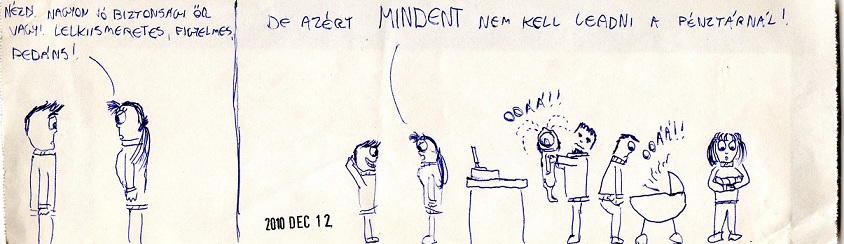 NÉZD. NAGYON JÓ BIZTONSÁGI ŐR
VAGY! LELKIISMERETES, FIGYELMES,
PEDÁNS!
DE AZÉRT MINDENT NEM KELL LEADNI A PÉNZTÁRNÁL!
OOÁÁ!!
OOÁÁ!!
2010 DEC 12.